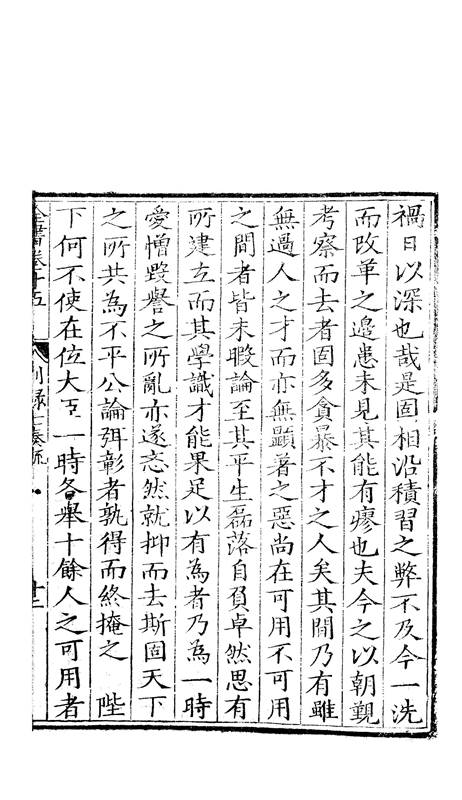 禍日以深也哉是固相沿積習之弊不及今一洗
而改革之邉患未見其能有瘳也夫今之以朝覲
考察而去者固多貪暴不才之人矣其間乃有雖
無過人之才而亦無顯著之惡尚在可用不可用
之間者皆未暇論至其平生磊落自負卓然思有
所建立而其學識才能果足以有為者乃為一時
愛憎毀譽之所亂亦遂忿然就抑而去斯固天下
之所共為不平公論弭彰者孰得而終掩之 陛
下何不使在位大臣一時各舉十餘人之可用者
全書卷十五 別錄七奏疏 十二